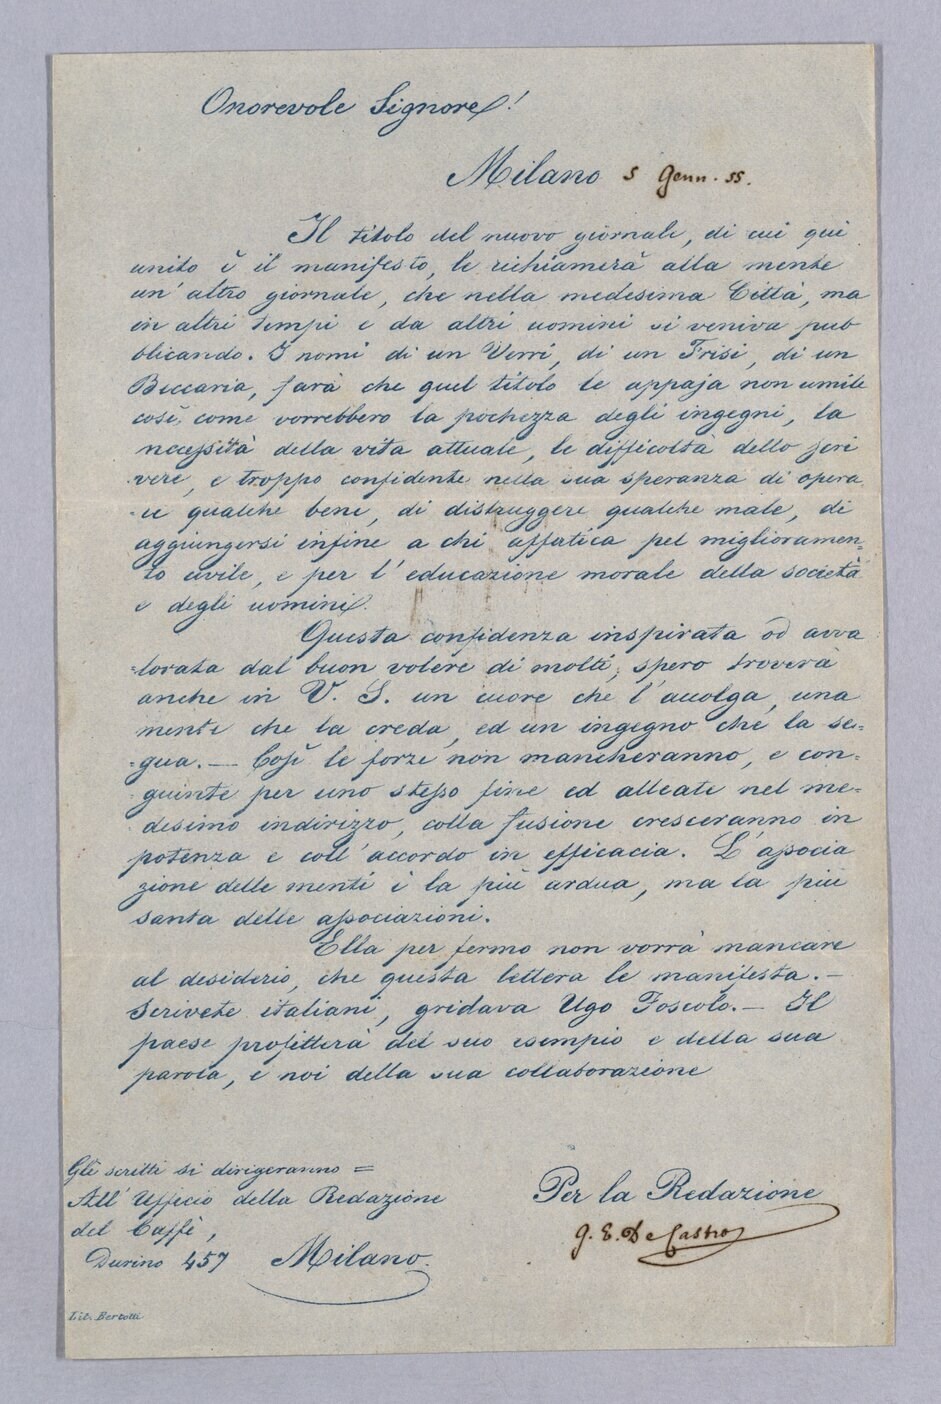 Onorevole Signore!
Milano 5 Genn. 55.
Il titolo del nuovo giornale, di cui qui
unito è il manifesto, le richiamerà alla mente
un'altro giornale, che nella medesima Città, ma
in altri tempi e da altri uomini si veniva pub
blicando. I nomi di un Verri, di un Frisi, di un
Beccaria, farà che quel titolo le appaja non umile
così, come vorrebbero la pochezza degli ingegni, la
necessità della vita attuale, le difficoltà dello scri
vere, e troppo confidente nella sua speranza di opera
re qualche bene, di distruggere qualche male, di
aggiungersi infine a chi affatica pel miglioramen=
to civile, e per l'educazione morale della società
e degli uomini.
Questa confidenza inspirata od avva
=lorata dal buon volere di molti, spero troverà
anche in V. S. un cuore che l'accolga, una
mente che la creda, ed un ingegno che la se=
=gua. — Così le forze non mancheranno, e con=
giunte per uno stesso fine ed alleate nel me=
desimo indirizzo, colla fusione cresceranno in
potenza e coll'accordo in efficacia. L'associa
zione delle menti è la più ardua, ma la più
santa delle associazioni.
Ella per fermo non vorrà mancare
al desiderio, che questa lettera le manifesta. —
Scrivete italiani, gridava Ugo Foscolo. — Il
paese profitterà del suo esempio e della sua
parola, e noi della sua collaborazione
Gli scritti si dirigeranno =
All'Ufficio della Redazione
del Caffè,
Durino 457 Milano.
Per la Redazione
G. E. De Castro
Lit. Bertotti